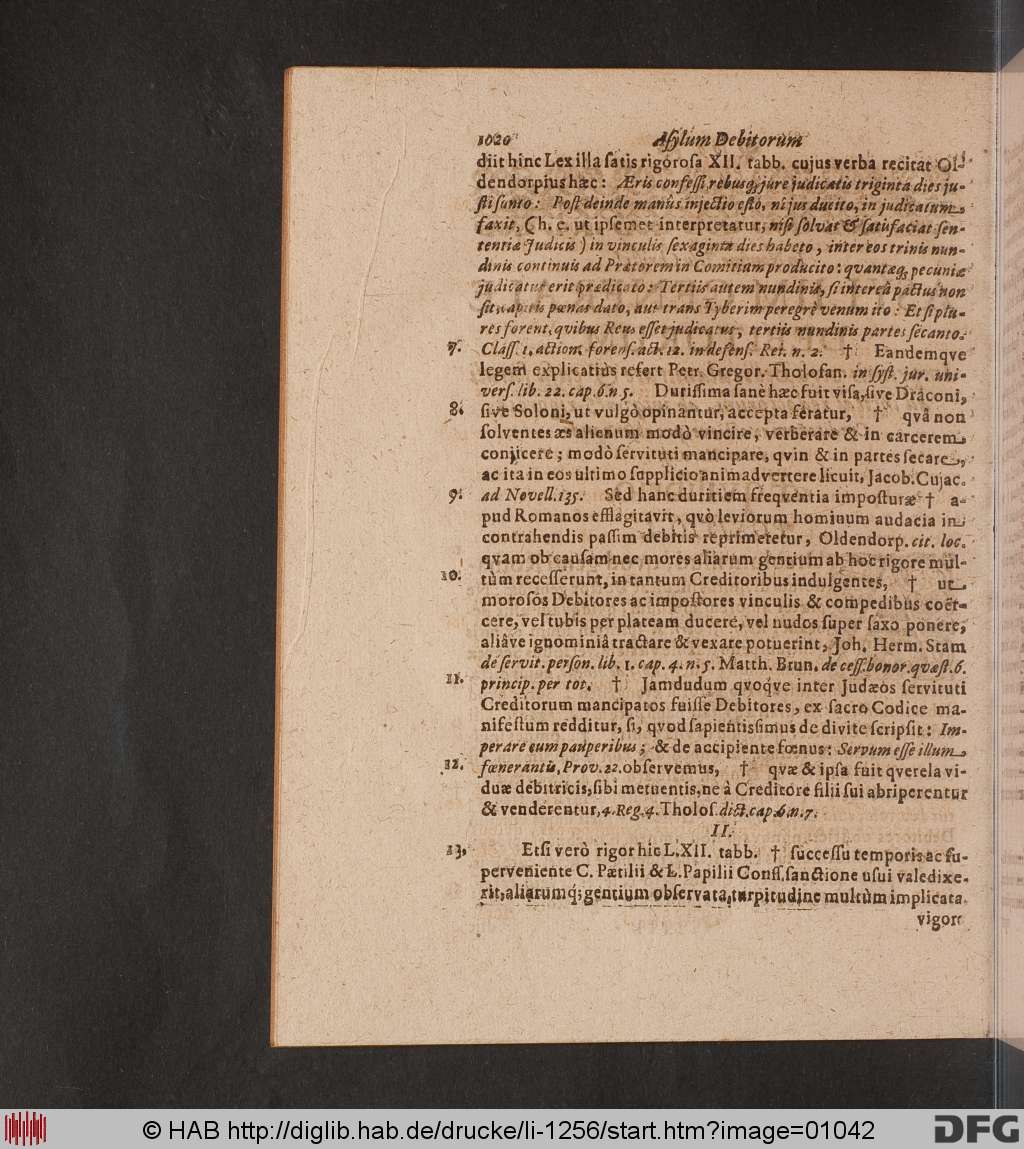 1020 Aſylum Debitorum
diit hinc Lex illa ſatis rigoroſa XII. tabb. cujus verba recitat Ol-
dendorpius hæc: Æris confeſſi, rebusq; jure judicatis triginta dies ju-
ſti ſunto: Poſt deinde manus injectio eſto, ni jus ducito, in judicatum
faxit, (h. e. ut ipſemet interpretatur, niſi ſolvat & ſatisfaciat ſen-
tentiæ Judicis) in vinculis ſexaginta dies habeto, inter eos trinis nun-
dinis continuis ad Prætorem in Comitium producito: qvantæq; pecuniæ
judicatus erit prædicato: Tertiis autem nundinis, ſi intereà pactus non
ſit, capitis pœnas dato, aut trans Tyberim peregrè venum ito: Et ſi plu-
res forent, qvibus Reus eſſet judicatus, tertiis nundinis partes ſecanto.
7. Claſſ. 1. action. forenſ. act. 12. in defenſ. Rei. n. 2. † Eandemqve
legem explicatiùs refert Petr. Gregor. Tholoſan. in ſyſt. jur. uni-
verſ. lib. 22. cap. 6. n 5. Duriſſima ſanè hæc fuit viſa, ſive Draconi,
8. ſive Soloni, ut vulgò opinantur, accepta feratur, † qvâ non
ſolventes æs alienum modò vincire, verberare & in carcerem
conjicere; modò ſervituti mancipare, qvin & in partes ſecare,
ac ita in eos ultimo ſupplicio animadvertere licuit, Jacob. Cujac.
9. ad Novell. 135. Sed hanc duritiem freqventia impoſturæ † a-
pud Romanos efflagitavit, qvò leviorum hominum audacia in
contrahendis paſſim debitis reprimeretur, Oldendorp. cit. loc.
qvam ob cauſam nec mores aliarum gentium ab hoc rigore mul-
10. tùm receſſerunt, in tantum Creditoribus indulgentes, † ut
moroſos Debitores ac impoſtores vinculis & compedibus coër-
cere, vel tubis per plateam ducere, vel nudos ſuper ſaxo ponere,
aliâve ignominiâ tractare & vexare potuerint, Joh. Herm. Stam
de ſervit. perſon. lib. 1. cap. 4. n. 5. Matth. Brun. de ceſſ. bonor. qvæſt. 6.
11. princip. per tot. † Jamdudum qvoqve inter Judæos ſervituti
Creditorum mancipatos fuiſſe Debitores, ex ſacro Codice ma-
nifeſtum redditur, ſi, qvod ſapientissimus de divite ſcripſit: Im-
perare eum pauperibus; & de accipiente fœnus: Servum eſſe illum
12. fœnerantis, Prov. 22. obſervemus, † qvæ & ipſa fuit qverela vi-
duæ debitricis, ſibi metuentis, ne à Creditore filii ſui abriperentur
& venderentur, 4. Reg. 4. Tholoſ. dict. cap. 6. n. 7.
II.
13. Etſi verò rigor hic L. XII. tabb. † ſucceſſu temporis ac ſu-
perveniente C. Pætilii & L. Papilii Conſſ. ſanctione uſui valedixe-
rit, aliarumq; gentium obſervata, turpitudine multùm implicata
vigore
© HAB http://diglib.hab.de/drucke/li-1256/start.htm?image=01042
DFG